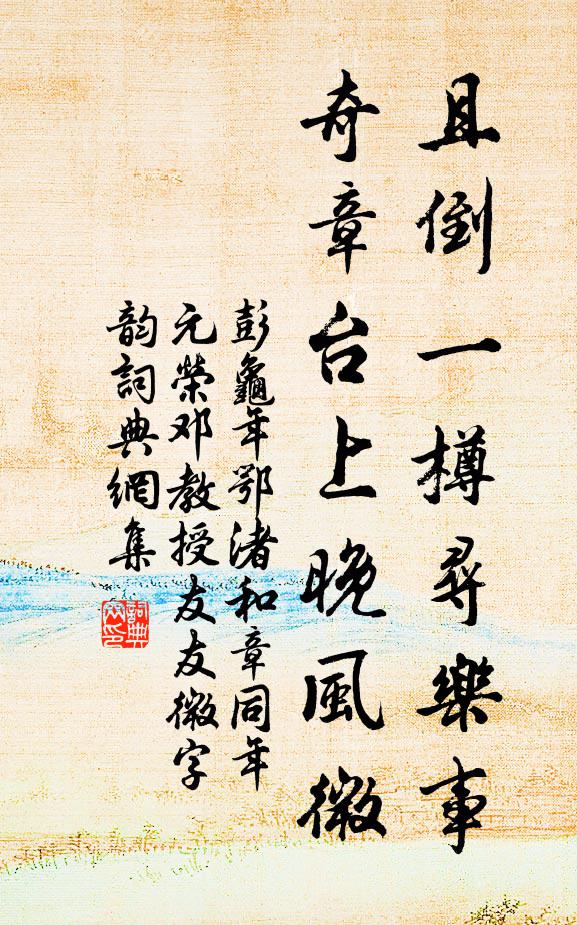 且倒一樽尋樂事
奇章台上晚風微
彭龜年鄂渚和章同年
元榮邓教授友友微字
韵詞典網集